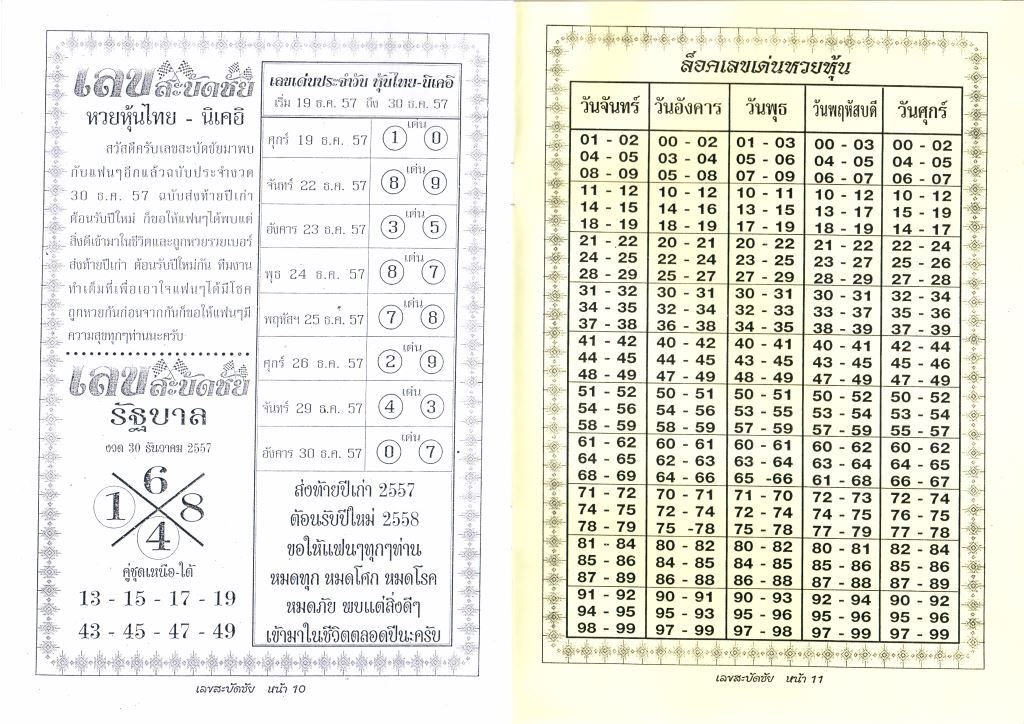 เลขสะบัดชัย
หวยหุ้นไทย - นิเคอิ
สวัสดีครับเลขสะบัดชัยมาพบ
กับแฟนๆอีกแล้วฉบับประจำงวด
30 ธ.ค. 57 ฉบับส่งท้ายปีเก่า
ต้อนรับปีใหม่ ก็ขอให้แฟนๆได้พบแต่
สิ่งดีเข้ามาในชีวิตและถูกหวยรวยเบอร์
ส่งท้ายปีเก่า ต้อนรับปีใหม่กัน ทีมงาน
ทำเต็มที่เพื่อเอาใจแฟนๆได้มีโชค
ถูกหวยกันก่อนจากกันก็ขอให้แฟนๆมี
ความสุขทุกๆท่านนะครับ
เลขสะบัดชัย
รัฐบาล
งวด 30 ธันวาคม 2557
6
1 8
4
คู่ชุดเหนือ-ใต้
13 - 15 - 17 - 19
43 - 45 - 47 - 49
เลขเด่นประจำวัน หุ้นไทย-นิเคอิ
เริ่ม 19 ธ.ค. 57 ถึง 30 ธ.ค. 57
ศุกร์ 19 ธ.ค. 57 1 เด่น 0
จันทร์ 22 ธ.ค. 57 8 เด่น 9
อังคาร 23 ธ.ค. 57 3 เด่น 5
พุธ 24 ธ.ค. 57 8 เด่น 7
พฤหัสฯ 25 ธ.ค. 57 7 เด่น 8
ศุกร์ 26 ธ.ค. 57 2 เด่น 9
จันทร์ 29 ธ.ค. 57 4 เด่น 3
อังคาร 30 ธ.ค. 57 0 เด่น 7
ส่งท้ายปีเก่า 2557
ต้อนรับปีใหม่ 2558
ขอให้แฟนๆทุกๆท่าน
หมดทุก หมดโศก หมดโรค
หมดภัย พบแต่สิ่งดีๆ
เข้ามาในชีวิตตลอดปีนะครับ
เลขสะบัดชัย หน้า 10
ล็อคเลขเด่นหวยหุ้น
วันจันทร์ วันอังคาร วันพุธ วันพฤหัสบดี วันศุกร์
01 - 02 00 - 02 01 - 03 00 - 03 00 - 02
04 - 05 03 - 04 05 - 06 04 - 05 04 - 05
08 - 09 05 - 08 07 - 09 06 - 07 06 - 07
11 - 12 10 - 12 10 - 11 10 - 12 10 - 12
14 - 15 14 - 16 13 - 15 13 - 17 15 - 19
18 - 19 18 - 19 17 - 19 18 - 19 14 - 17
21 - 22 20 - 21 20 - 22 21 - 22 22 - 24
24 - 25 22 - 24 23 - 25 23 - 27 25 - 26
28 - 29 25 - 27 27 - 29 28 - 29 27 - 28
31 - 32 30 - 31 30 - 31 30 - 31 32 - 34
34 - 35 32 - 34 32 - 33 33 - 37 35 - 36
37 - 38 36 - 38 34 - 35 38 - 39 37 - 39
41 - 42 40 - 42 40 - 41 40 - 41 42 - 44
44 - 45 44 - 45 43 - 45 43 - 45 45 - 46
48 - 49 47 - 49 48 - 49 47 - 49 47 - 49
51 - 52 50 - 51 50 - 51 50 - 52 50 - 52
54 - 56 54 - 56 53 - 55 53 - 54 53 - 54
58 - 59 58 - 59 57 - 59 57 - 59 55 - 57
61 - 62 60 - 61 60 - 61 60 - 62 60 - 62
64 - 65 62 - 63 63 - 64 63 - 64 64 - 65
68 - 69 64 - 66 65 -66 61 - 68 66 - 67
71 - 72 70 - 71 71 - 70 72 - 73 72 - 74
74 - 75 72 - 74 72 - 74 74 - 75 76 - 75
78 - 79 75 -78 75 - 78 77 - 79 77 - 78
81 - 84 80 - 82 80 - 82 80 - 81 82 - 84
85 - 86 84 - 85 84 - 85 85 - 86 85 - 86
87 - 89 86 - 88 86 - 88 87 - 88 87 - 89
91 - 92 90 - 91 90 - 93 92 - 94 90 - 92
94 - 95 95 - 93 95 - 96 95 - 96 95 - 96
98 - 99 97 - 99 97 - 98 97 - 99 97 - 99
เลขสะบัดชัย หน้า 11